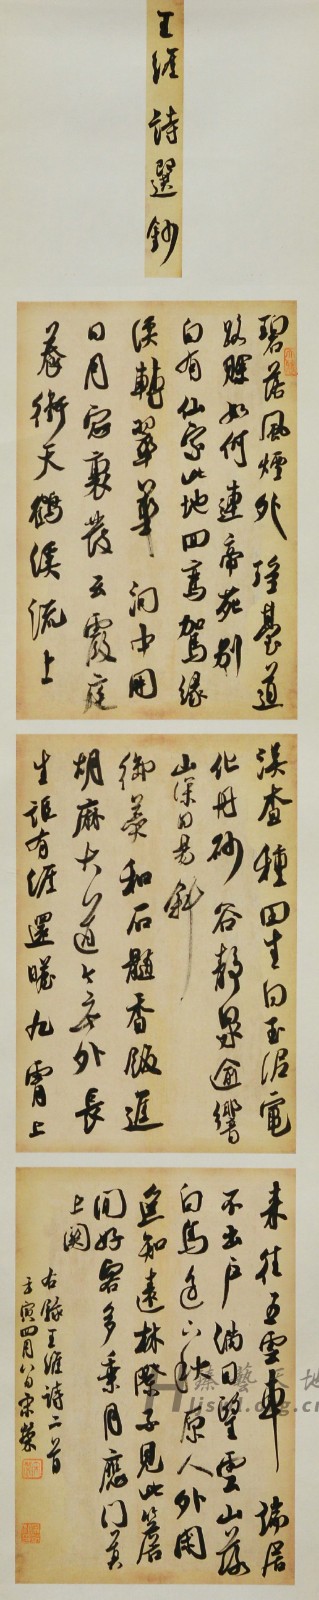 王維詩選鈔
碧落風煙外瑤臺道
路賒如何連帝苑別
自有仙家此地回鸞駕緣
溪轉翠華洞中開
日月窗裏發雲霞庭
養衝天鶴溪流上
漢查種田生白玉泥竈
化丹砂谷靜泉逾響
山深日易斜
御羹和石髓香飯進
胡麻大道今無外長
生詎有涯還瞻九霄上
來往五雲車端居
不出戶滿目望雲山落
日鳥邊下秋原人外閒
遙知遠林際不見此簷
間好客多乘月應門莫
上關
右錄王維詩二首
寅四月八日宋犖